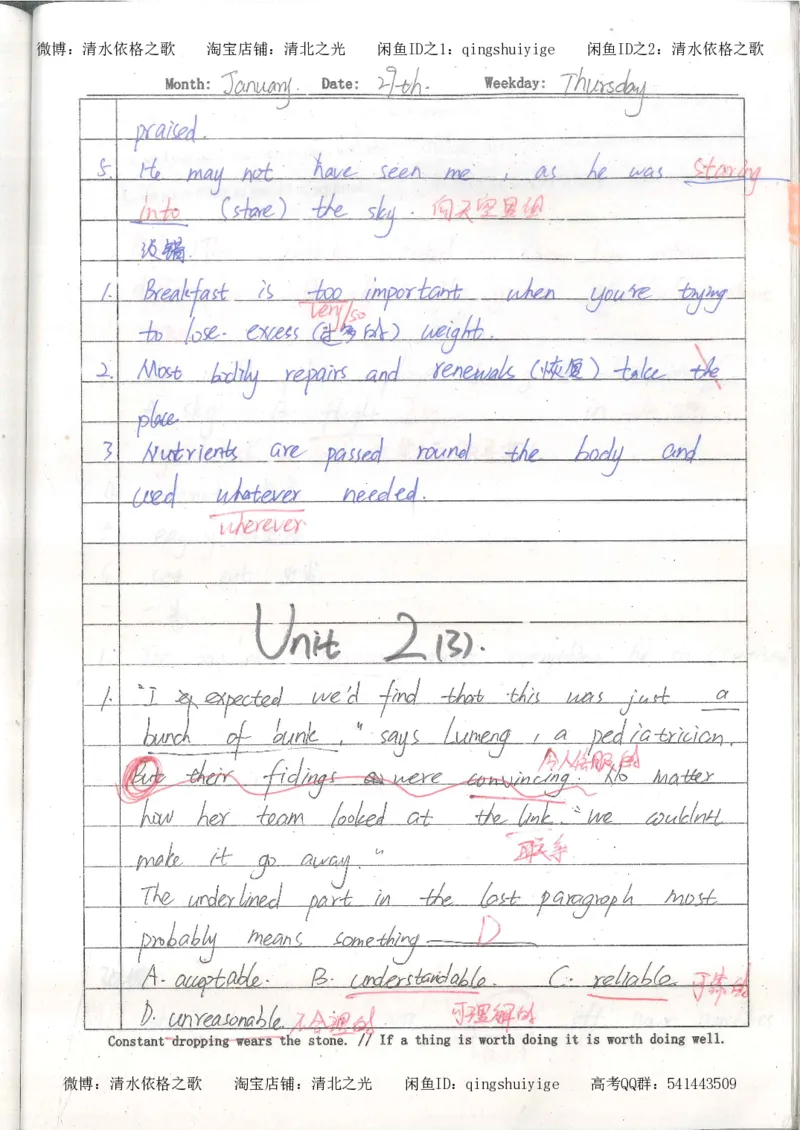 微博：清水依格之歌 淘宝店铺：清北之光 闲鱼ID之1：qingshuiyige 闲鱼ID之2：清水依格之歌
Month: January. Date: 29th. Weekday: Thursday
praised.
5. He may not have seen me, as he was staring
into (stare) the sky. 向天空里组
改错
1. Breakfast is too important when you're trying
very/so
to lose. excess (过多的) weight.
2. Most bodily repairs and renewals (恢复) take the
place.
3 Nutrients are passed round the body and
used whatever needed.
wherever
Unit 2 (3).
1. "I expected we'd find that this was just a
bunch of bunk," says Lumeng, a pediatrician.
令人信服的
But their fidings were convincing. No matter
how her team looked at the link. "we couldn't
联系
make it go away."
The underlined part in the last paragraph most
probably means something D
A. acceptable. B. understandable. C. reliable. 可靠的
D. unreasonable. 不合理的 可理解的
Constant dropping wears the stone. // If a thing is worth doing it is worth doing well.
微博：清水依格之歌 淘宝店铺：清北之光 闲鱼ID：qingshuiyige 高考QQ群：541443509